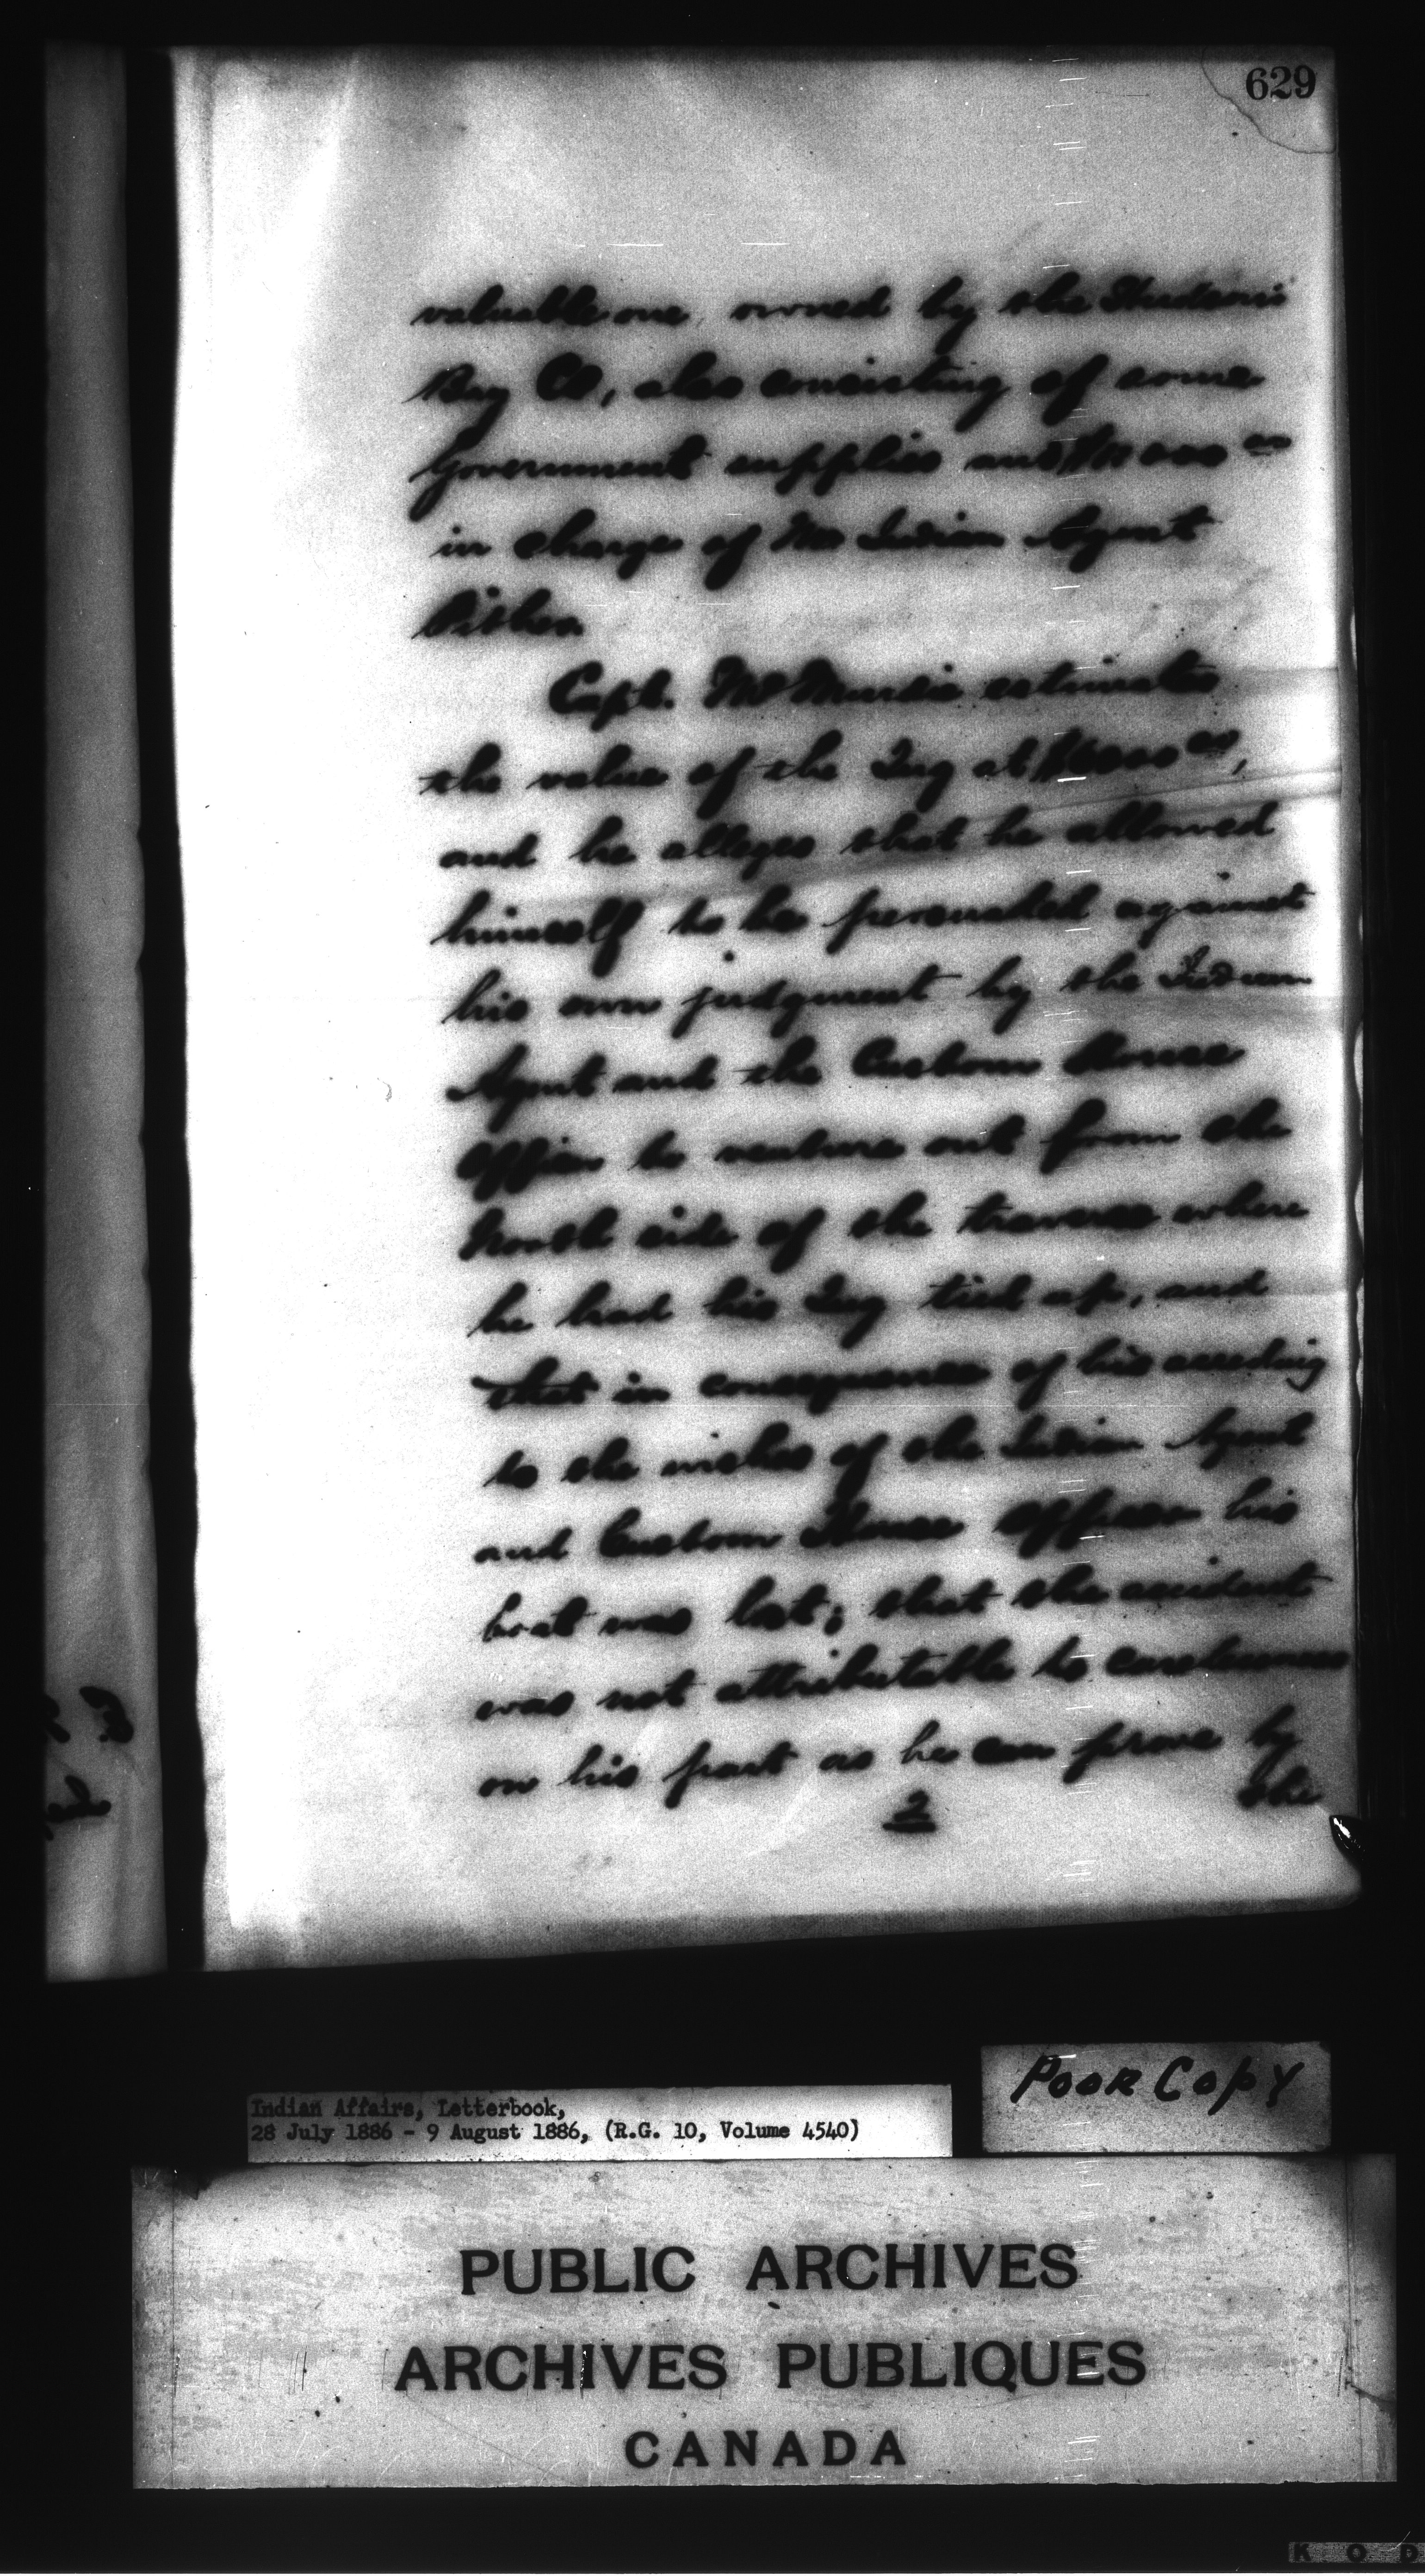 629
valuable one, owned by the Hudson's
Bay Co, also consisting of some
Government supplies and
in charge of Mr Indian Agent
Pither.
Capt. McMurdie estimates
the value of the Tug at
and he alleges that he allowed
himself to be persuaded against
his own judgment by the Indian
Agent and the Custom House
Officer to venture out from the
North side of the traverse where
he had his Tug tied up, and
that in consequence of his acceding
to the wishes of the Indian Agent
and Custom House Officer his
boat was lost; that the accident
was not attributable to carelessness
on his part as he can prove by
2
the
Poor Copy
Indian Affairs, Letterbook,
28 July 1886 - 9 August 1886, (R.G. 10, Volume 4540)
PUBLIC ARCHIVES
ARCHIVES PUBLIQUES
CANADA
K O D